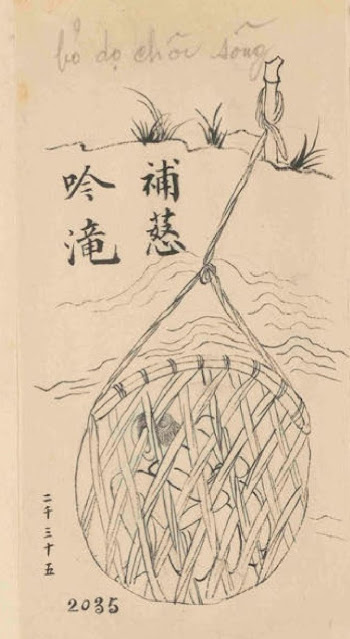 bỏ dọ chôi sông
補慈
吟滝
二千三十五
2035